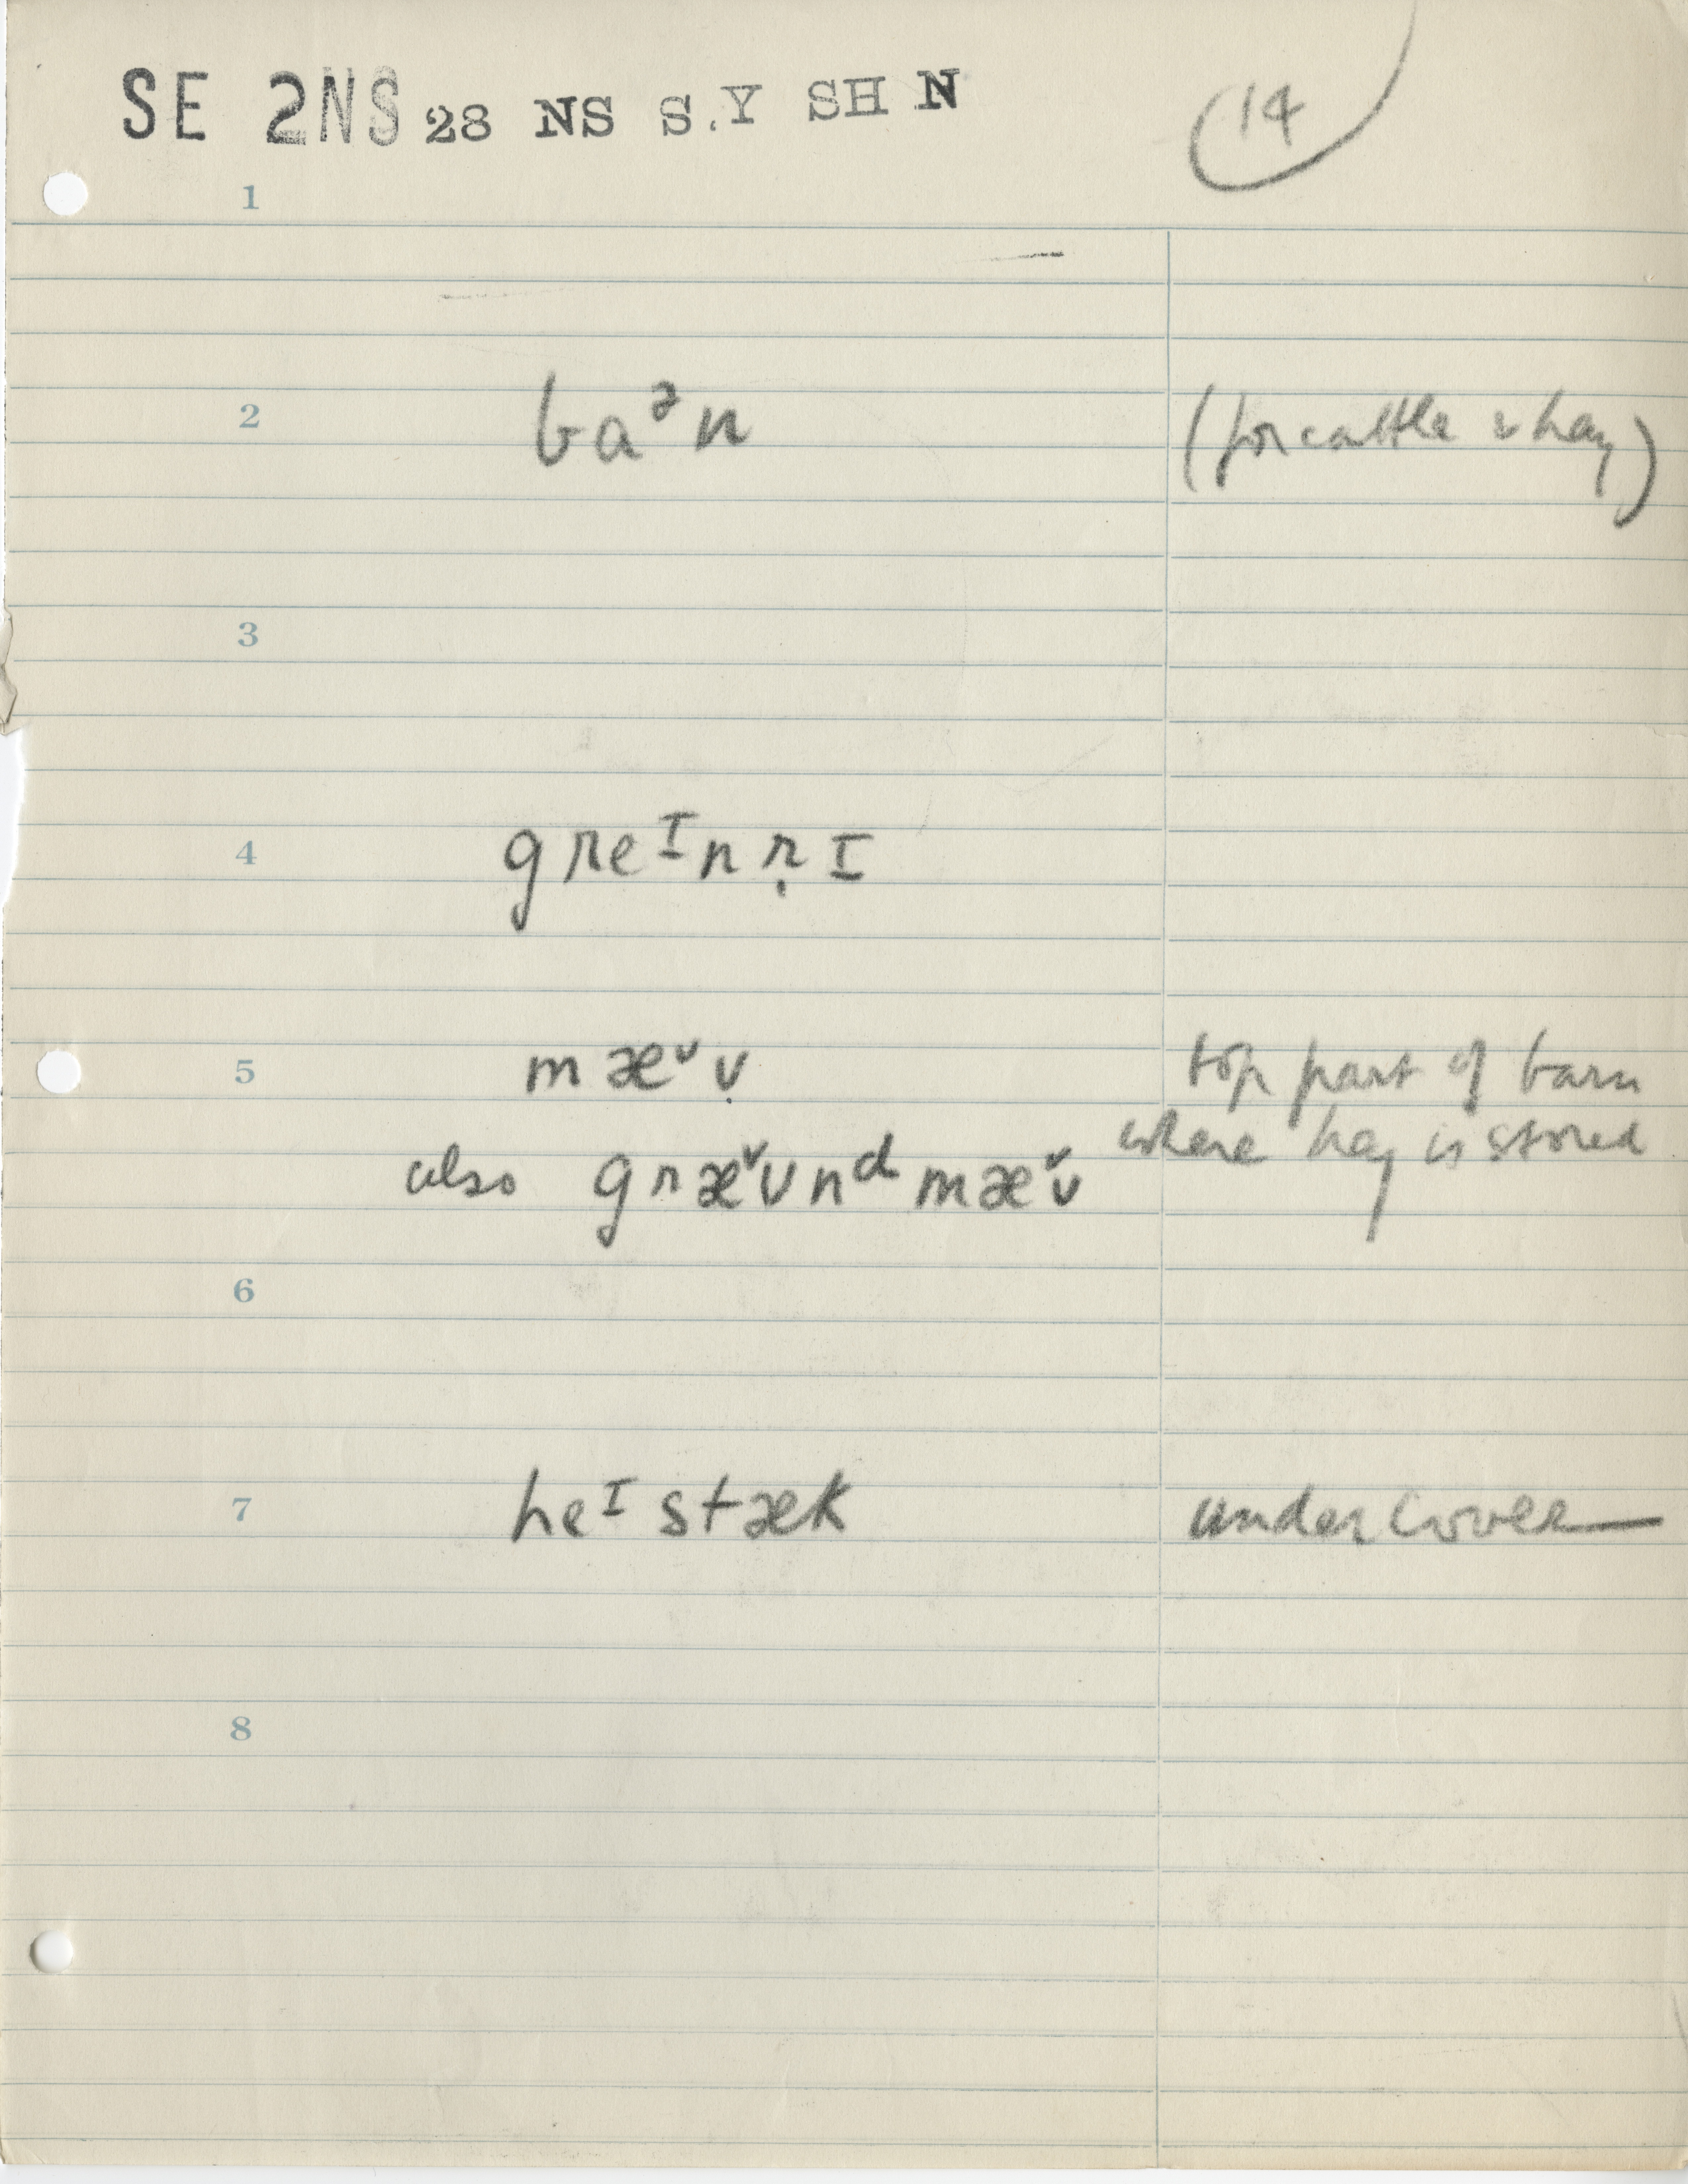 SE 2NS 28 NS S.Y SH N
14
1
2 baᵊn (for cattle & hay)
3
4 greᴵnṛI
5 mæᵛṿ top part of barn
where hay is stored
also græᵛʋnᵈmæᵛʋ
6
7 heᴵstæk under cover
8